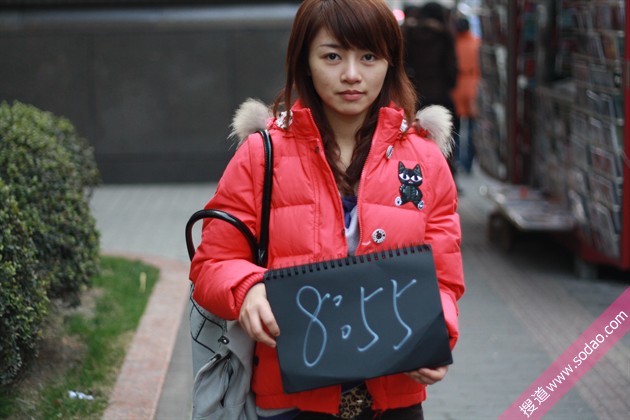 8:55
搜道 www.sodao.com